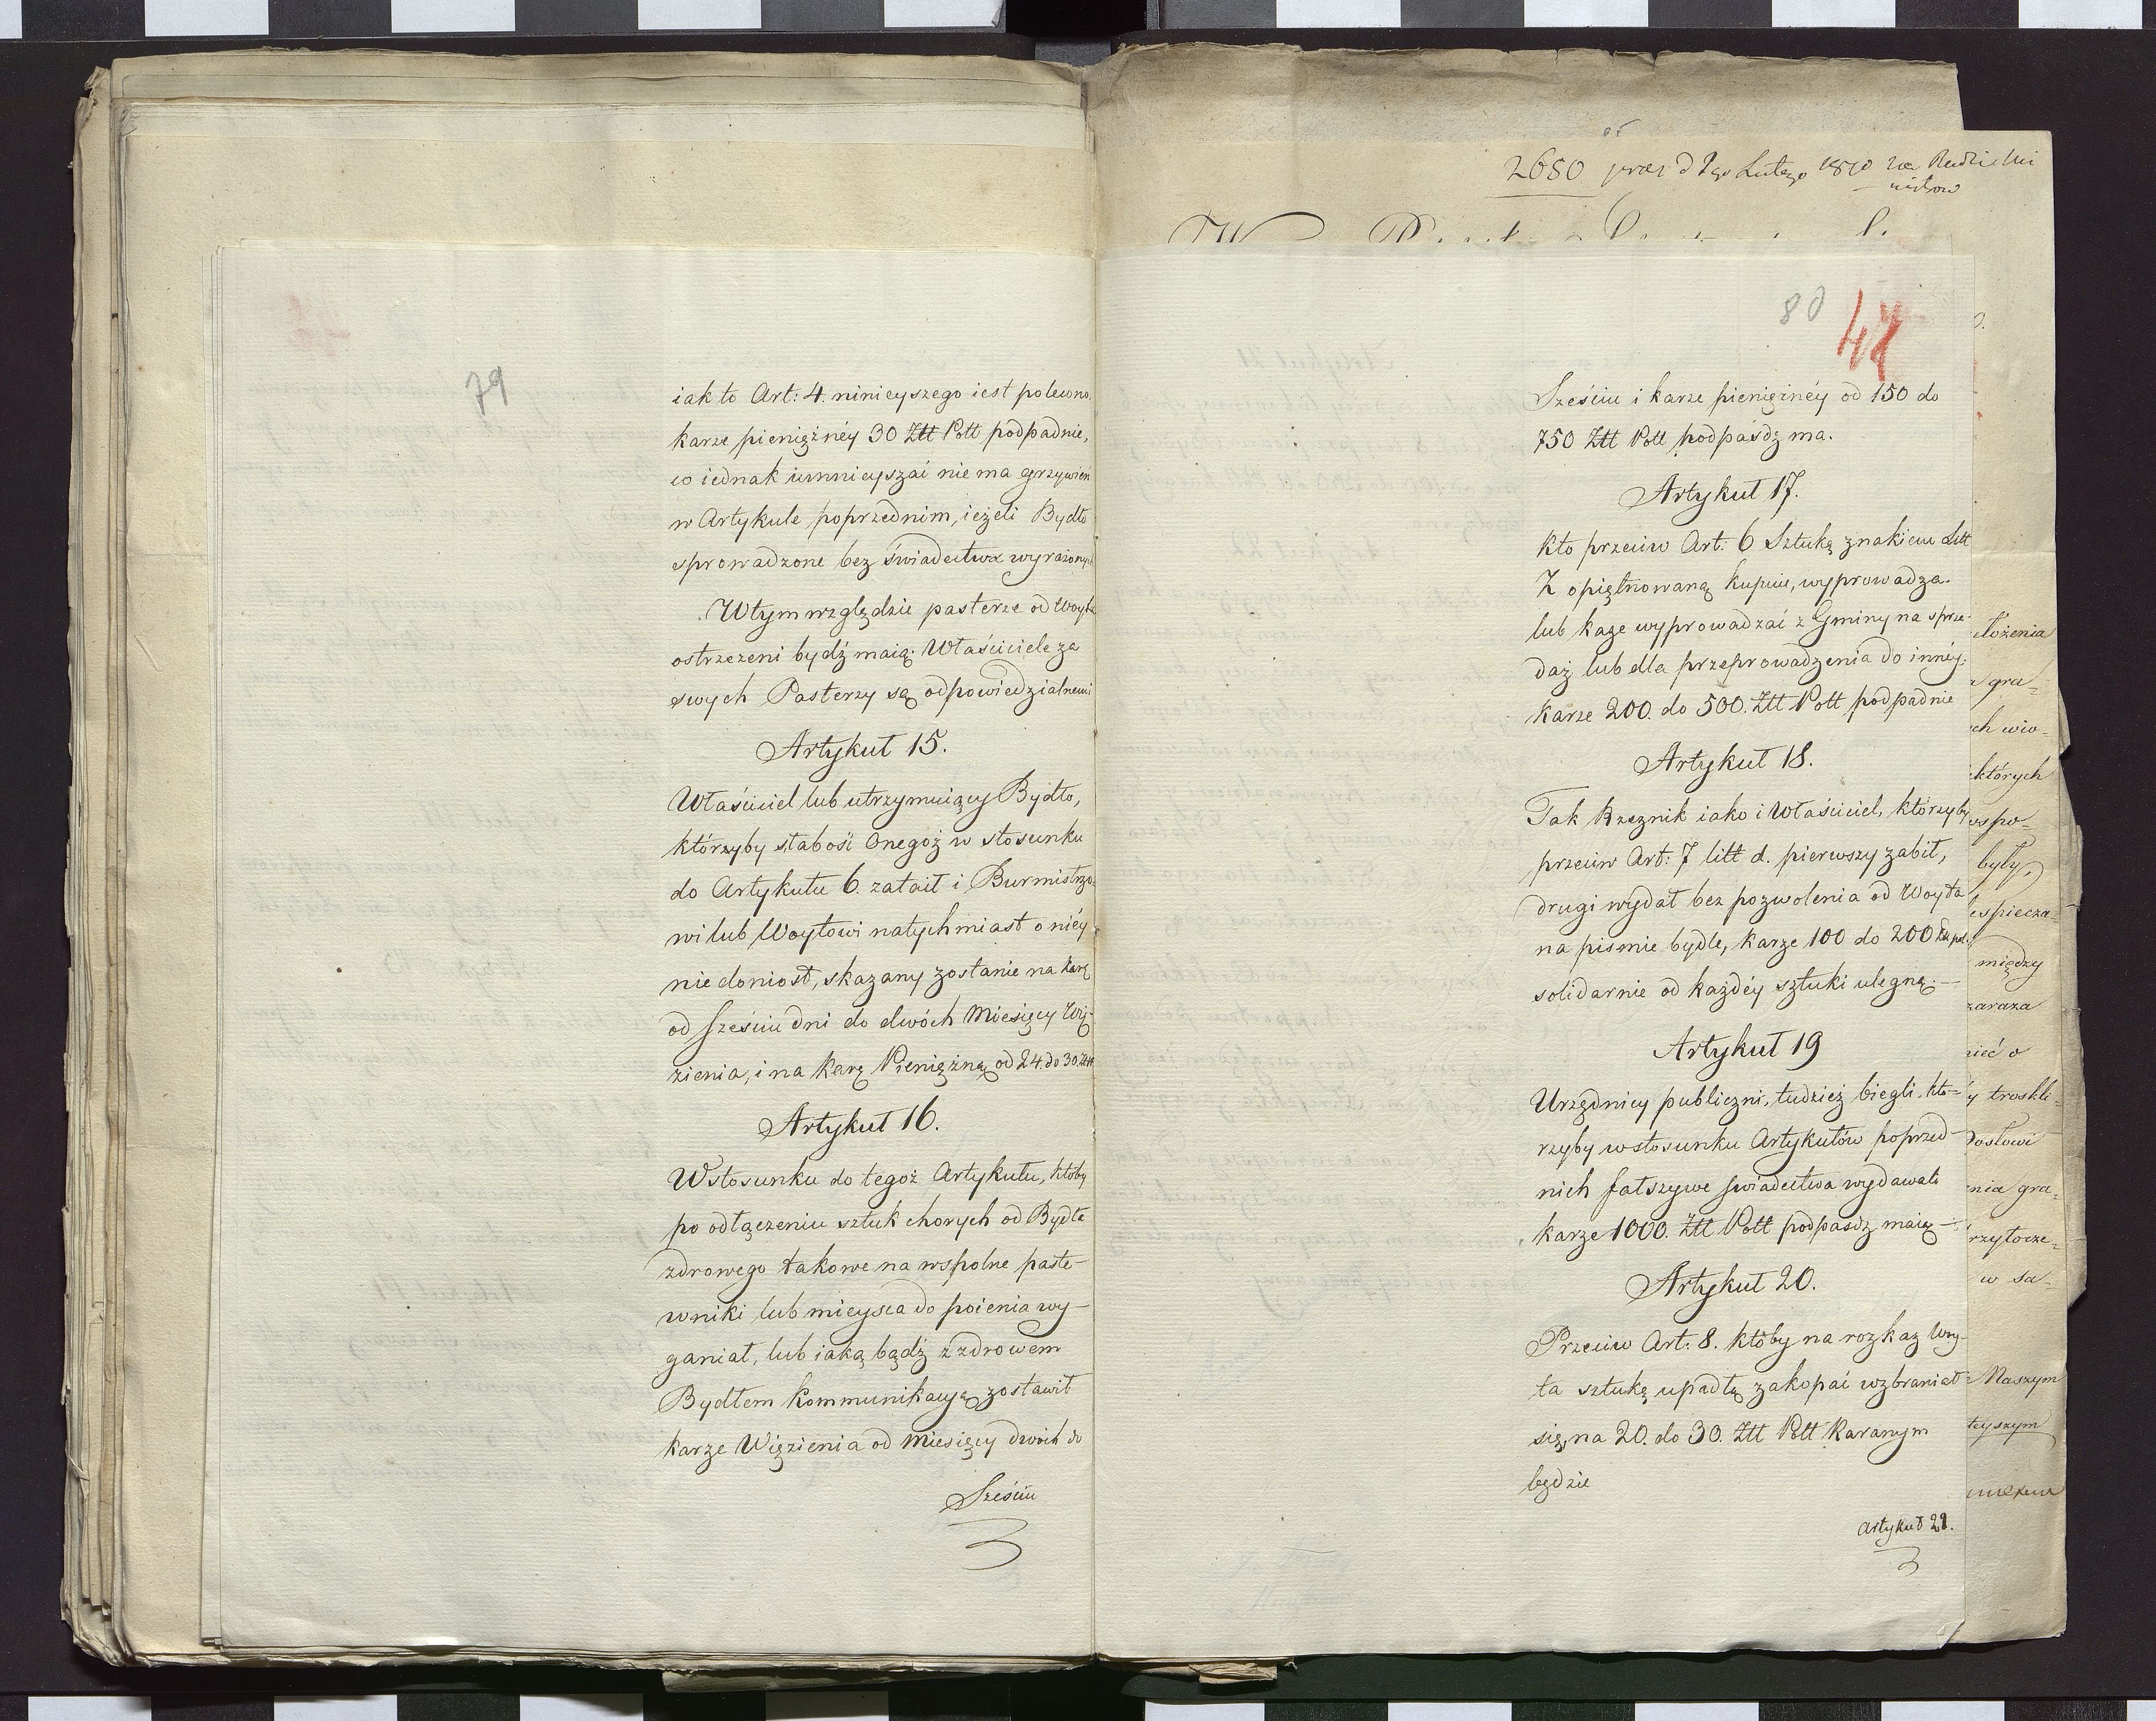 79
iak to Art: 4. ninieyszego iest polecono,
karze pieniężnéy 30 Ztt Poll podpadnie,
co iednak umnieyszać nie ma grzywien
w Artykule poprzednim, ieżeli Bydło
sprowadzone bez świadectwa wyrażonych
W tym względzie pasterze od Woyta
ostrzeżeni bydź maią. Właściciele za
swych Pasterzy są odpowiedzialnemi
Artykuł 15.
Właściciel lub utrzymuiący Bydło,
którzyby słabość Onegoż w stosunku
do Artykułu 6. zataił i Burmistrzo-
wi lub Woytowi natychmiast o niéy
nie doniosł, skazany zostanie na karę
od sześciu dni do dwóch Miesięcy Wię-
zienia, i na karę Pieniężną od 24. do 30. Ztt
Artykuł 16.
W stosunku do tegoż Artykułu, ktoby
po odłączeniu sztuk chorych od Bydła
zdrowego takowe na wspolne paste-
wniki lub mieysca do poienia wy-
ganiał, lub iaką bądź z zdrowem
Bydłem kommunikacyą zostawił
karze Więzienia od Miesięcy dwóch do
Sześciu
2680 Lutego 1810
80 47
Sześciu i karze pieniężnéy od 150 do
750 Ztt Poll podpaśdz ma.
Artykuł 17.
Kto przeciw Art: 6 Sztukę znakiem Litt
Z opiętnowaną kupuie, wyprowadza
lub każe wyprowadzać z Gminy na sprze-
daż lub dla przeprowadzenia do innéy,
karze 200. do 500. Ztt Poll podpadnie
Artykuł 18.
Tak Rzeznik iako i Właściciel, którzyby
przeciw Art: 7 litt d. pierwszy zabił,
drugi wydał bez pozwolenia od Woyta
na pismie bydle, karze 100 do 200 Ztt pol.
solidarnie od każdéy sztuki ulegną.—
Artykuł 19
Urzędnicy publiczni, tudzież biegli, któ-
rzyby w stosunku Artykułów poprzed-
nich fałszywe świadectwa wydawali
karze 1000. Ztt Poll podpaśdz maią—
Artykuł 20.
Przeciw Art: 8. ktoby na rozkaz Woy-
ta sztukę upadłą zakopać wzbraniał
się, na 20. do 30. Ztt Poll Karanym
będzie
Artykuł 21.
elożenia
gra-
których
były,
między
zaraza
troskli-
gra-
w sa-
Naszym